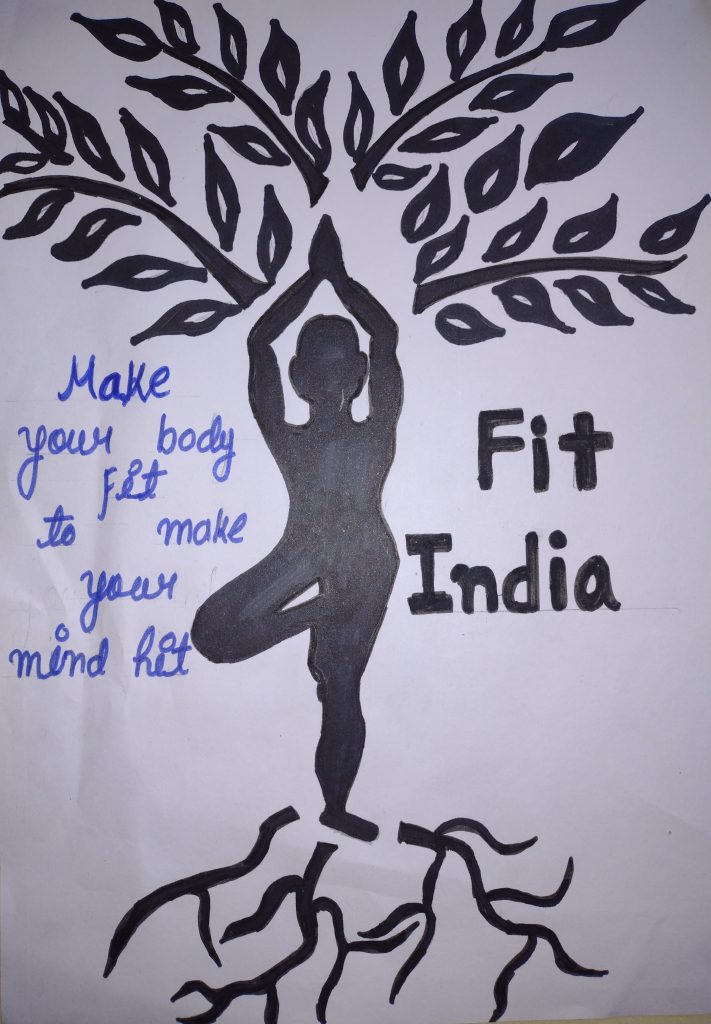 Make
your body
fit
to make
your
mind hit
Fit
India